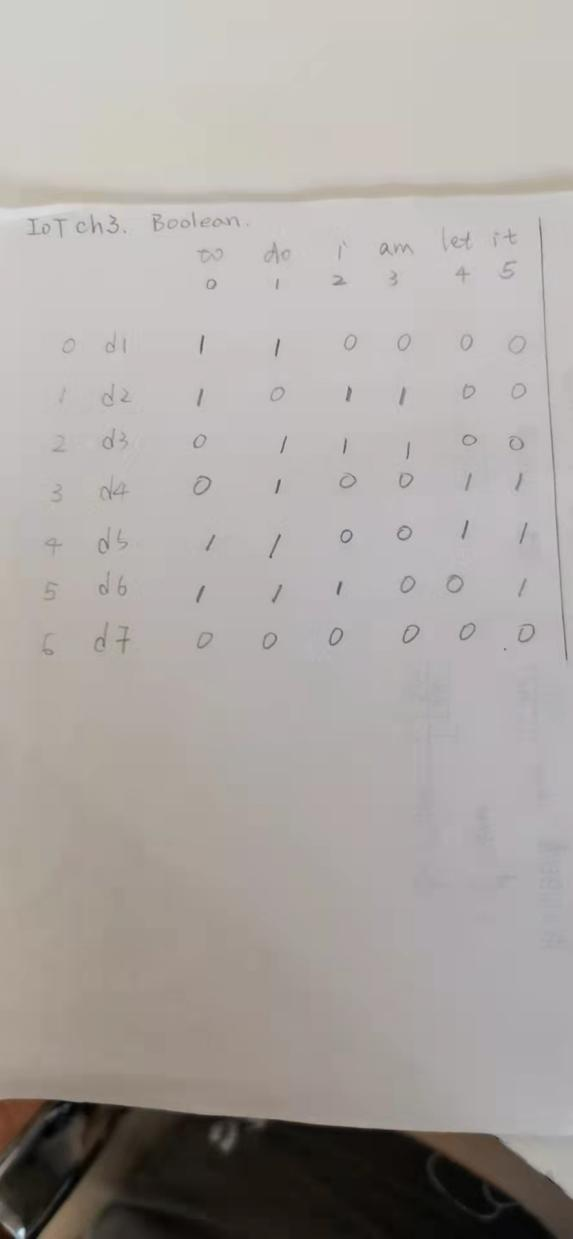 IoT ch3. Boolean.
to do i am let it
0 1 2 3 4 5
0 d1 1 1 0 0 0 0
1 d2 1 0 1 1 0 0
2 d3 0 1 1 1 0 0
3 d4 0 1 0 0 1 1
4 d5 1 1 0 0 1 1
5 d6 1 1 1 0 0 1
6 d7 0 0 0 0 0 0